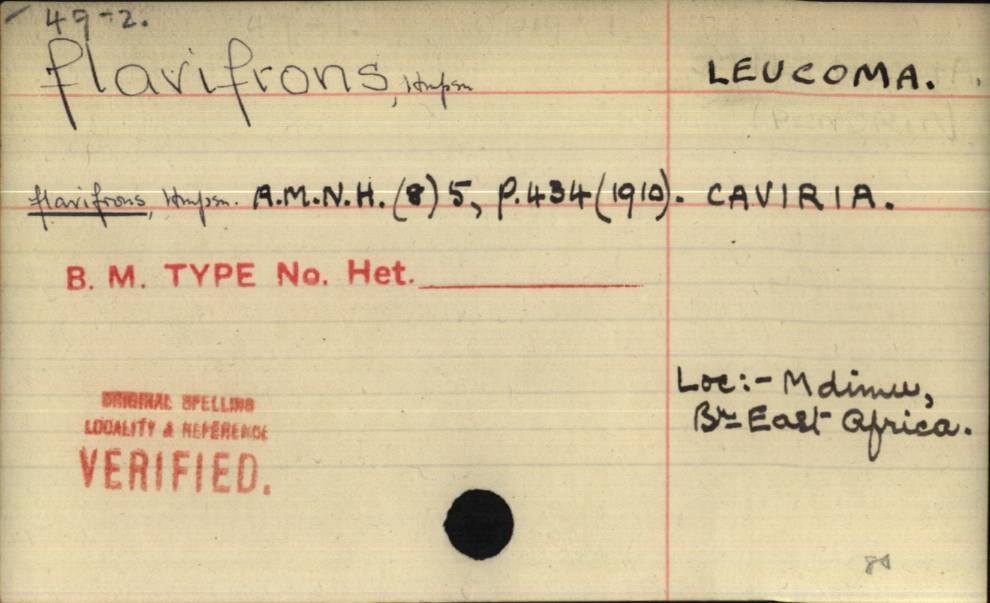 49-2.
flavifrons, Hmpsn LEUCOMA.
flavifrons, Hmpsn. A.M.N.H. (8) 5, P.434 (1910). CAVIRIA.
B. M. TYPE No. Het.
Loc:- Mdimu,
Br East Africa.
ORIGINAL SPELLING
LOCALITY & REFERENCE
VERIFIED.